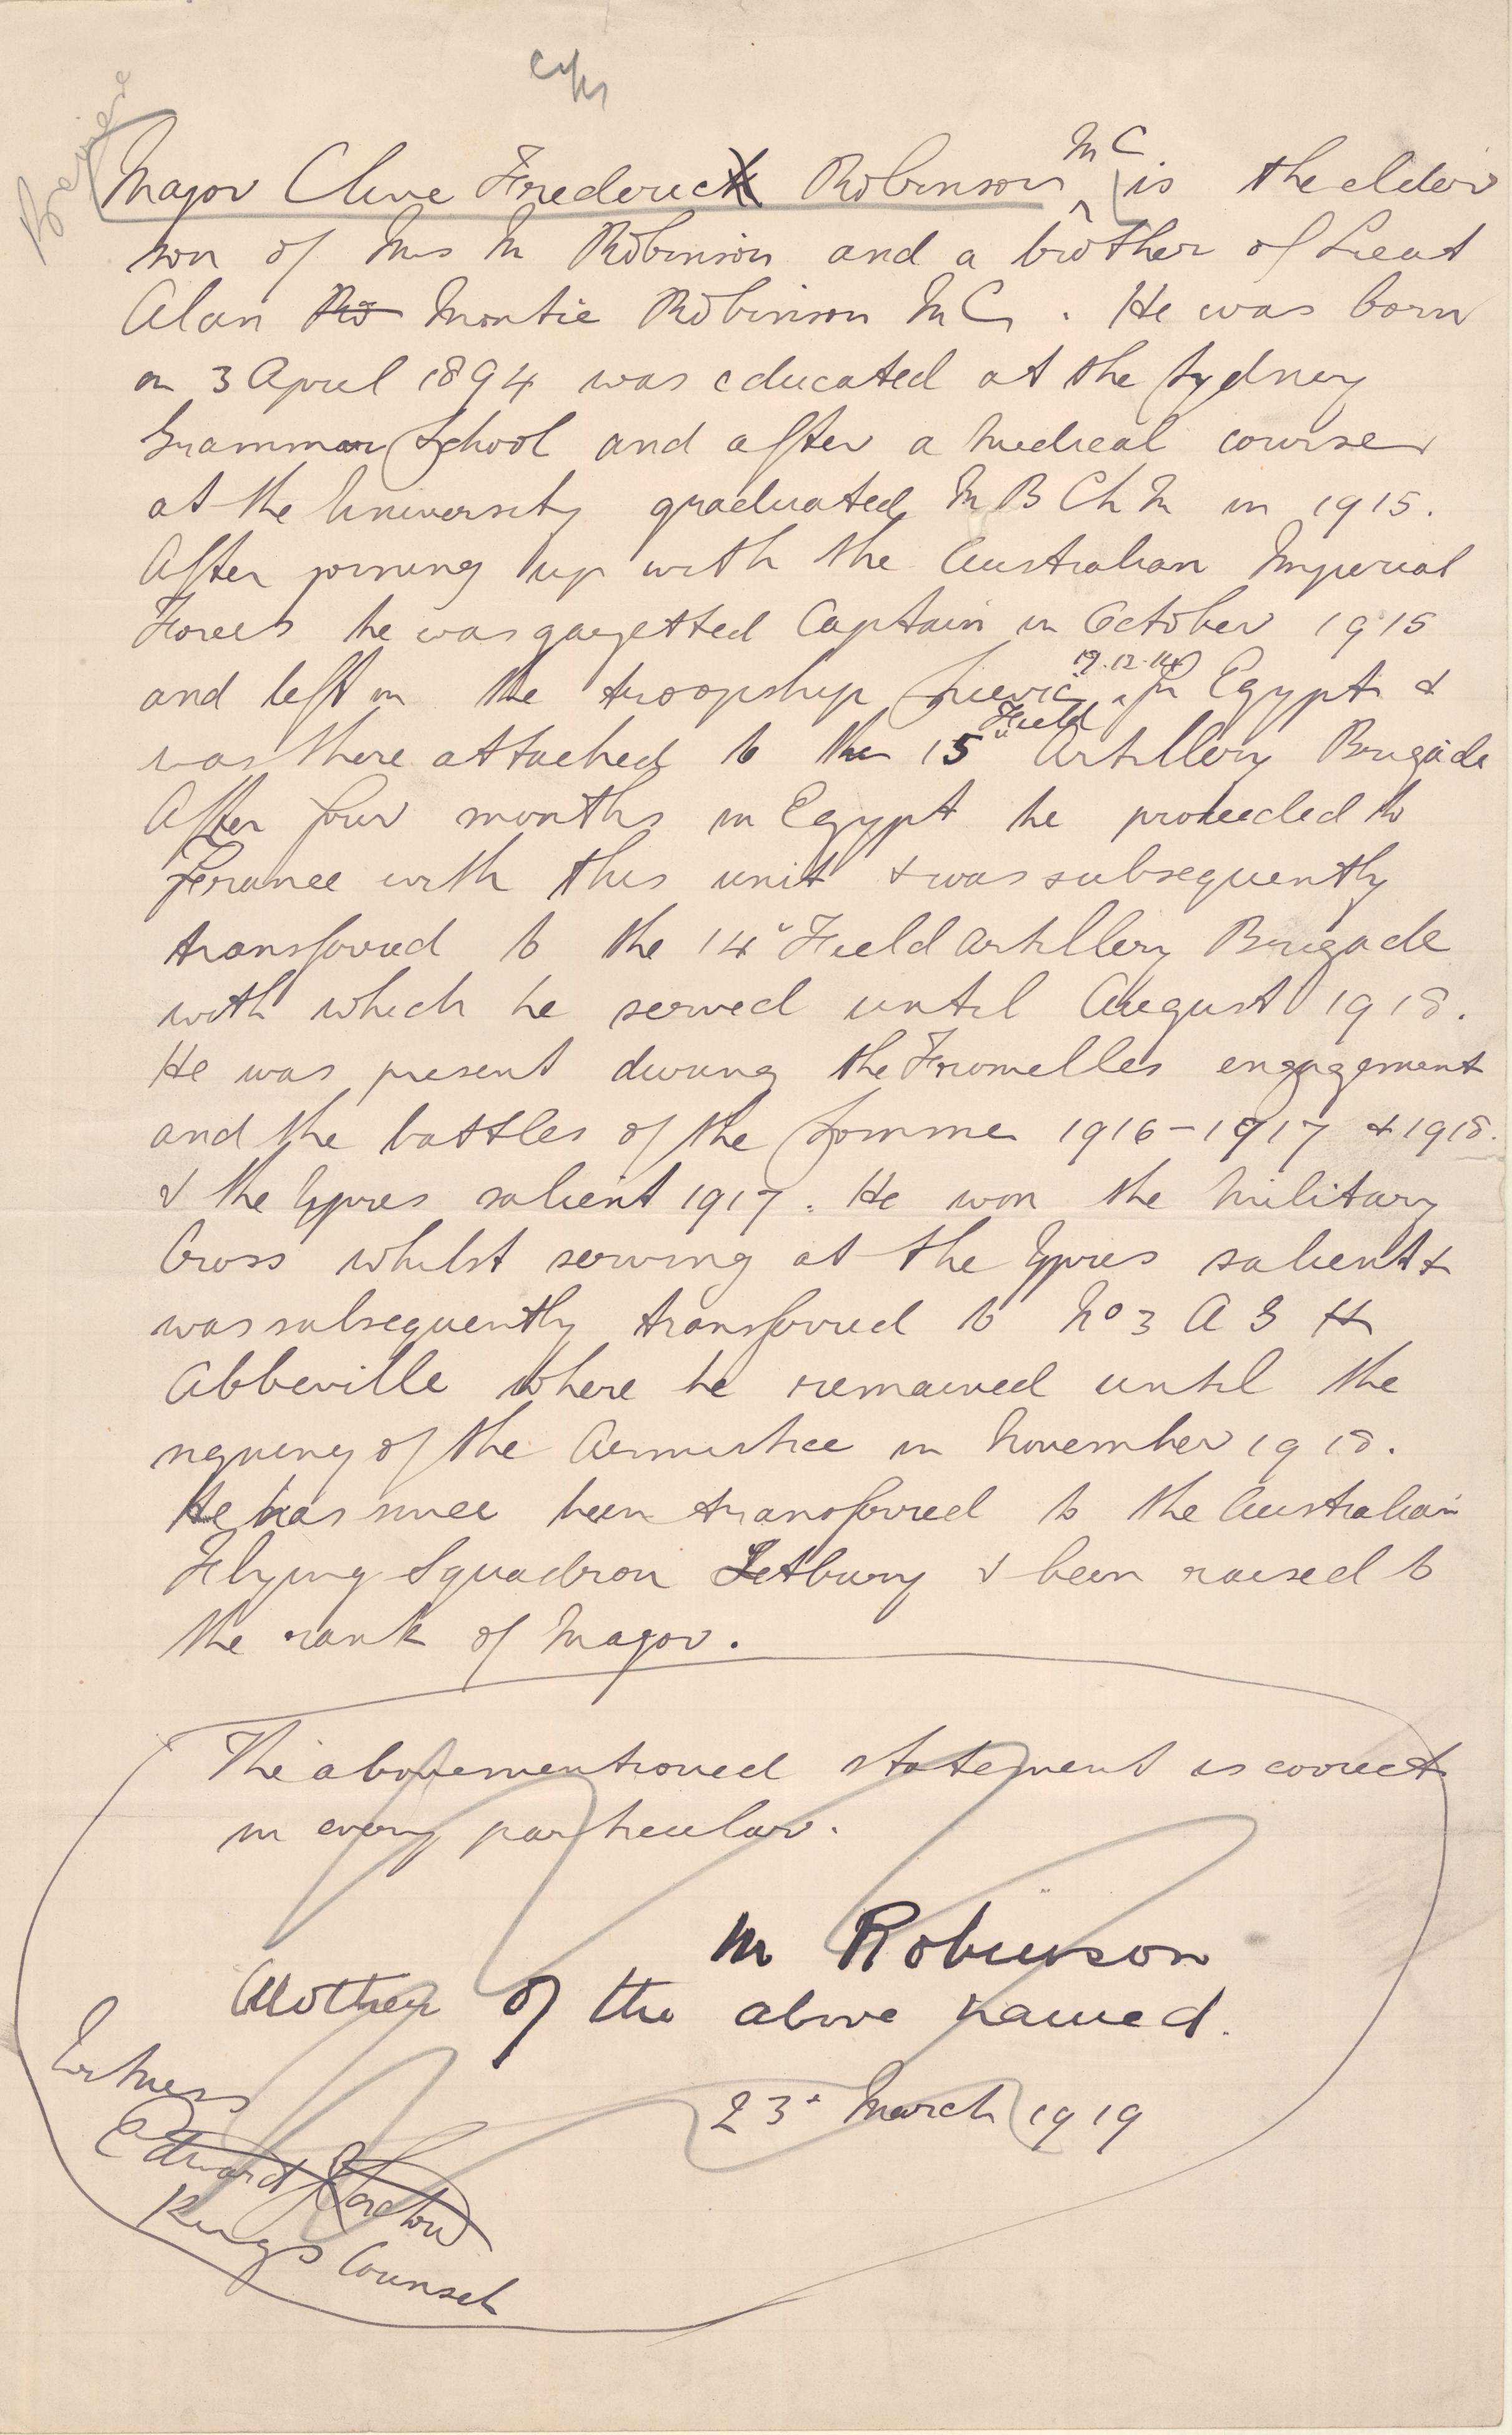 Major Clive Frederic Robinson MC is the elder
son of Mrs M Robinson and a brother of Lieut
Alan Ro Montie Robinson MC. He was born
on 3 April 1894 was educated at the Sydney
Grammar School and after a medical course
at the University graduated M B Ch M in 1915.
After joining up with the Australian Imperial
Forces he was gazetted Captain in October 1915
and left in the troopship for Egypt &
was there attached to the 15" Field Artillery Brigade
After four months in Egypt he proceeded to
France with this unit & was subsequently
transferred to the 14" Field Artillery Brigade
with which he served until August 1918.
He was present during the Fromelles engagement
and the battles of the Somme 1916-1917 & 1918.
& the Ypres salient 1917. He won the Military
Cross whilst serving at the Ypres salient &
was subsequently transferred to No 3 A G H
Abbeville where he remained until the
signing of the Armistice in November 1918.
He has since been transferred to the Australian
Flying Squadron Tetbury & been raised to
the rank of Major.
The abovementioned statement is correct
in every particular.
M Robinson
Mother of the above named.
23" March 1919
Witness
Edward
Kings Counsel